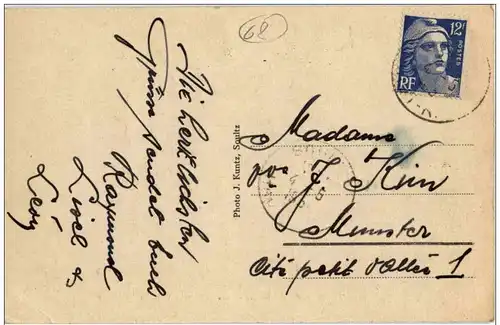 68
Die herzlichsten
Grüsse sendet Euch
Raymond
Lisel &
Léon
Photo J. Kuntz, Soultz
12F
POSTES
RF
Madame
J. Kün
Munster
Cité petit 1